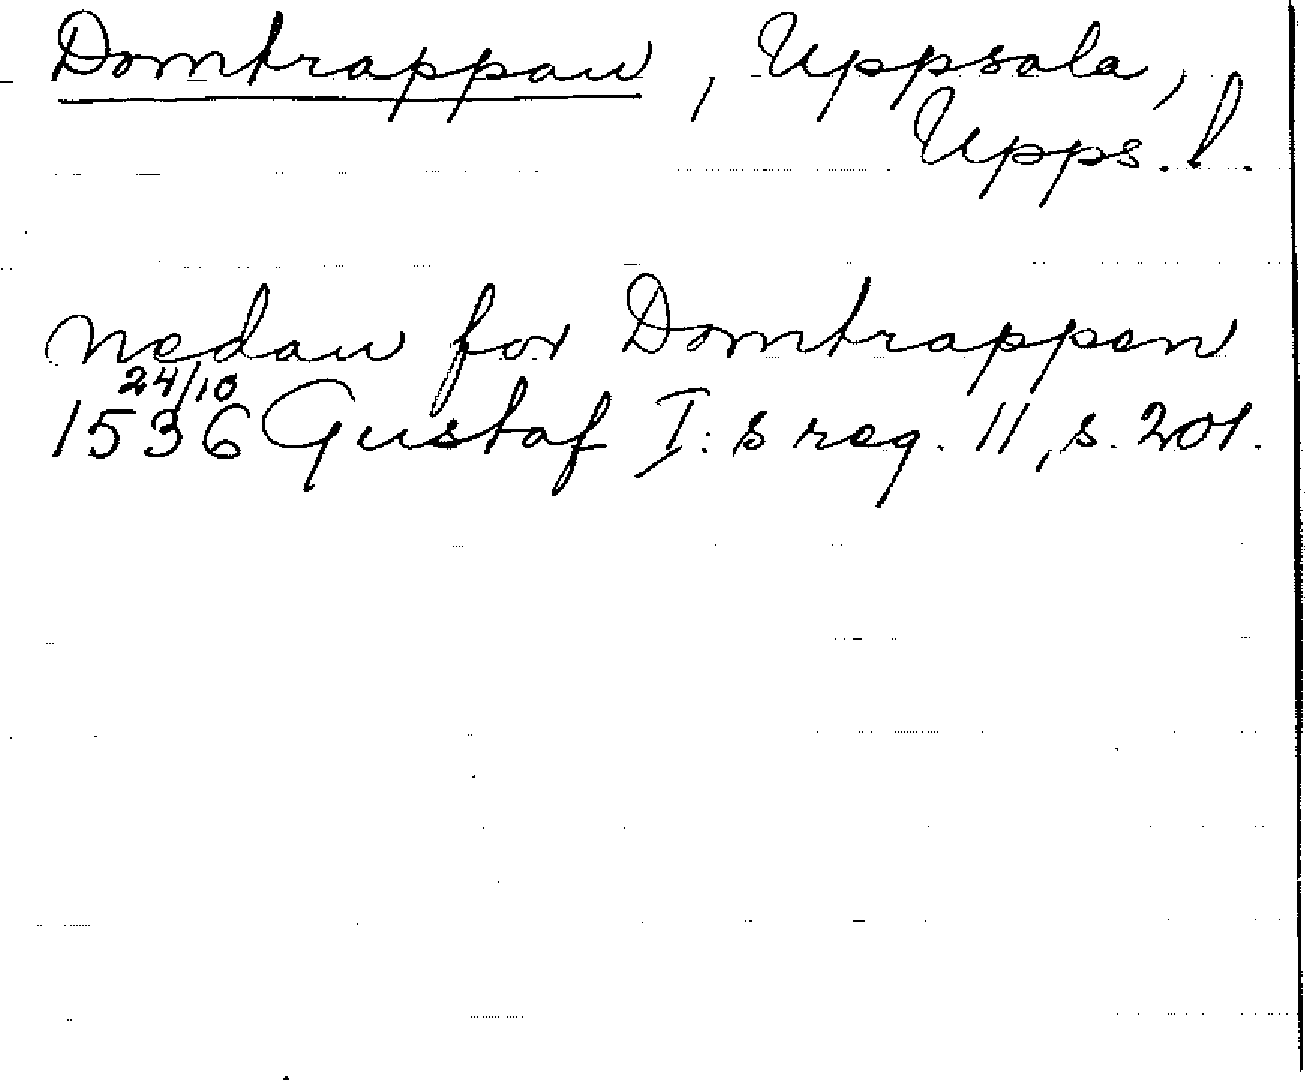 Domtrappan, Uppsala,
Upps. l.
nedan for Domtrappen
24/10
1536 Gustaf I:s reg. 11, s. 201.